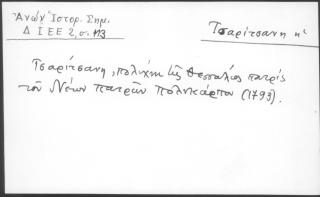 Ἀνων. Ἱστορ. Σημ.
Δ Ι Ε Ε 2, σ. 113
Τσαρίτσανη
Τσαρίτσανη, πολίχνη τῆς Θεσσαλίας πατρὶς
τοῦ Νέων Πατρῶν Πολυκάρπου (1793).